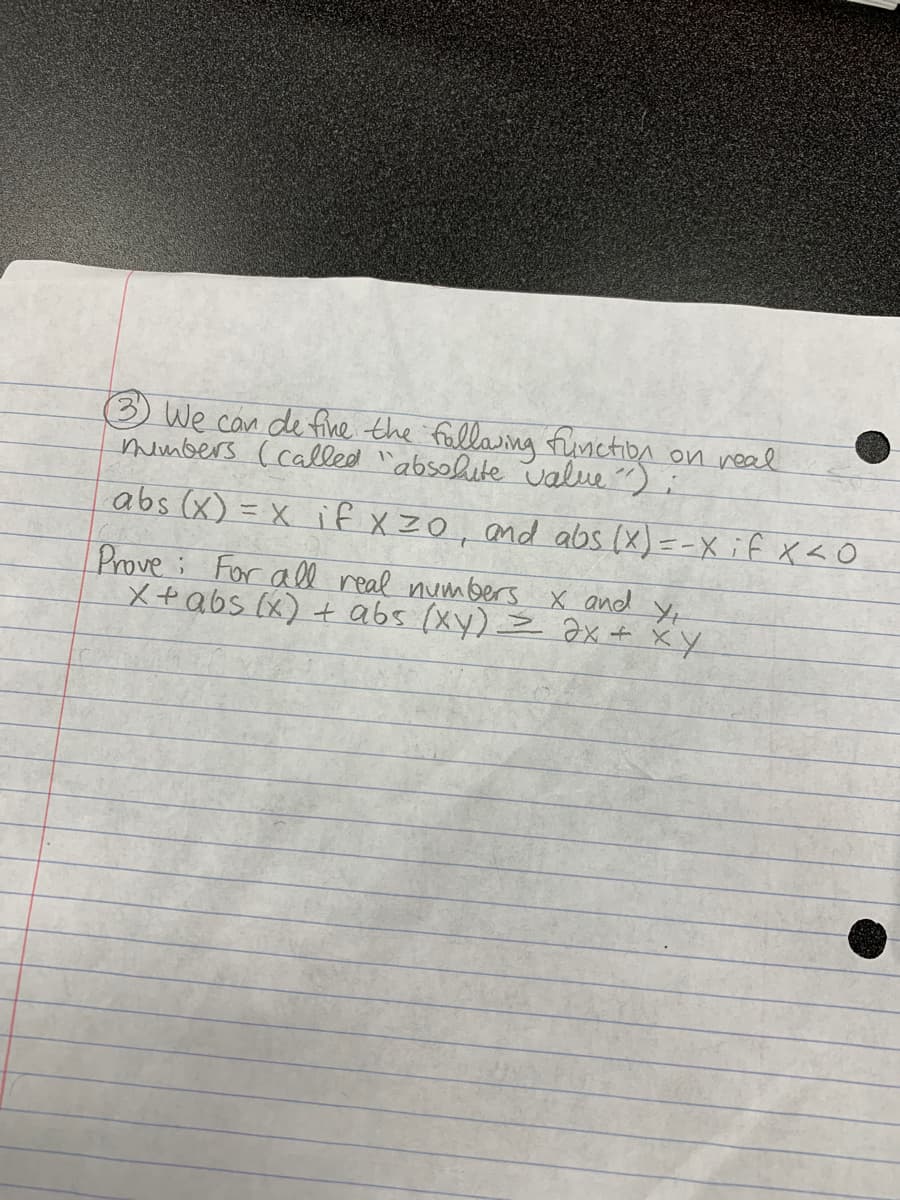 ③ We can define the following function on real
numbers (called "absolute value"):
abs (x) = x if x ≥ 0, and abs (x) = -x if x < 0
Prove: For all real numbers x and y,
x + abs (x) + abs (xy) ≥ 2x + xy